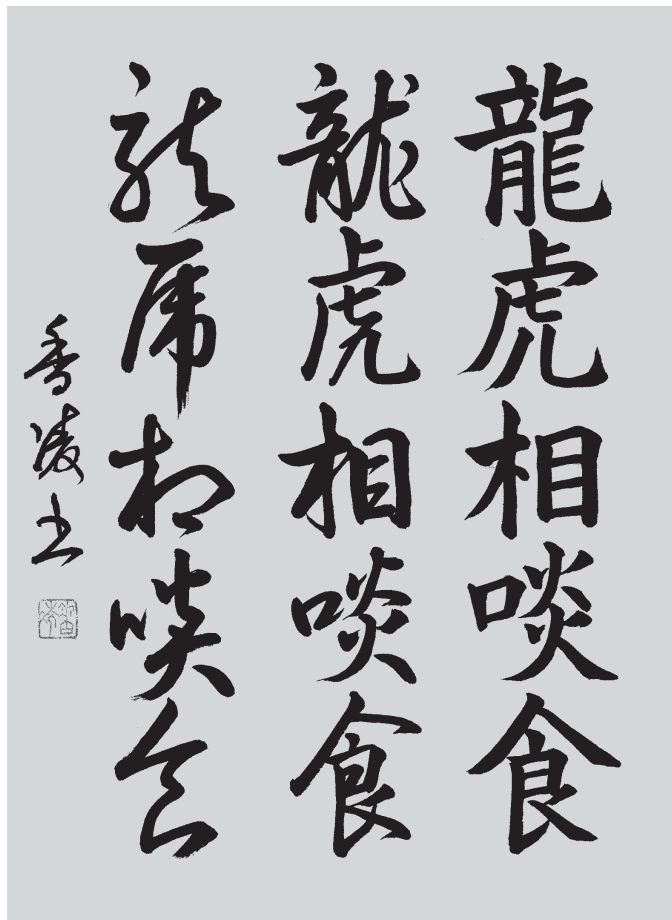 龍虎相啖食
龍虎相啖食
龍虎相啖食
香凌書